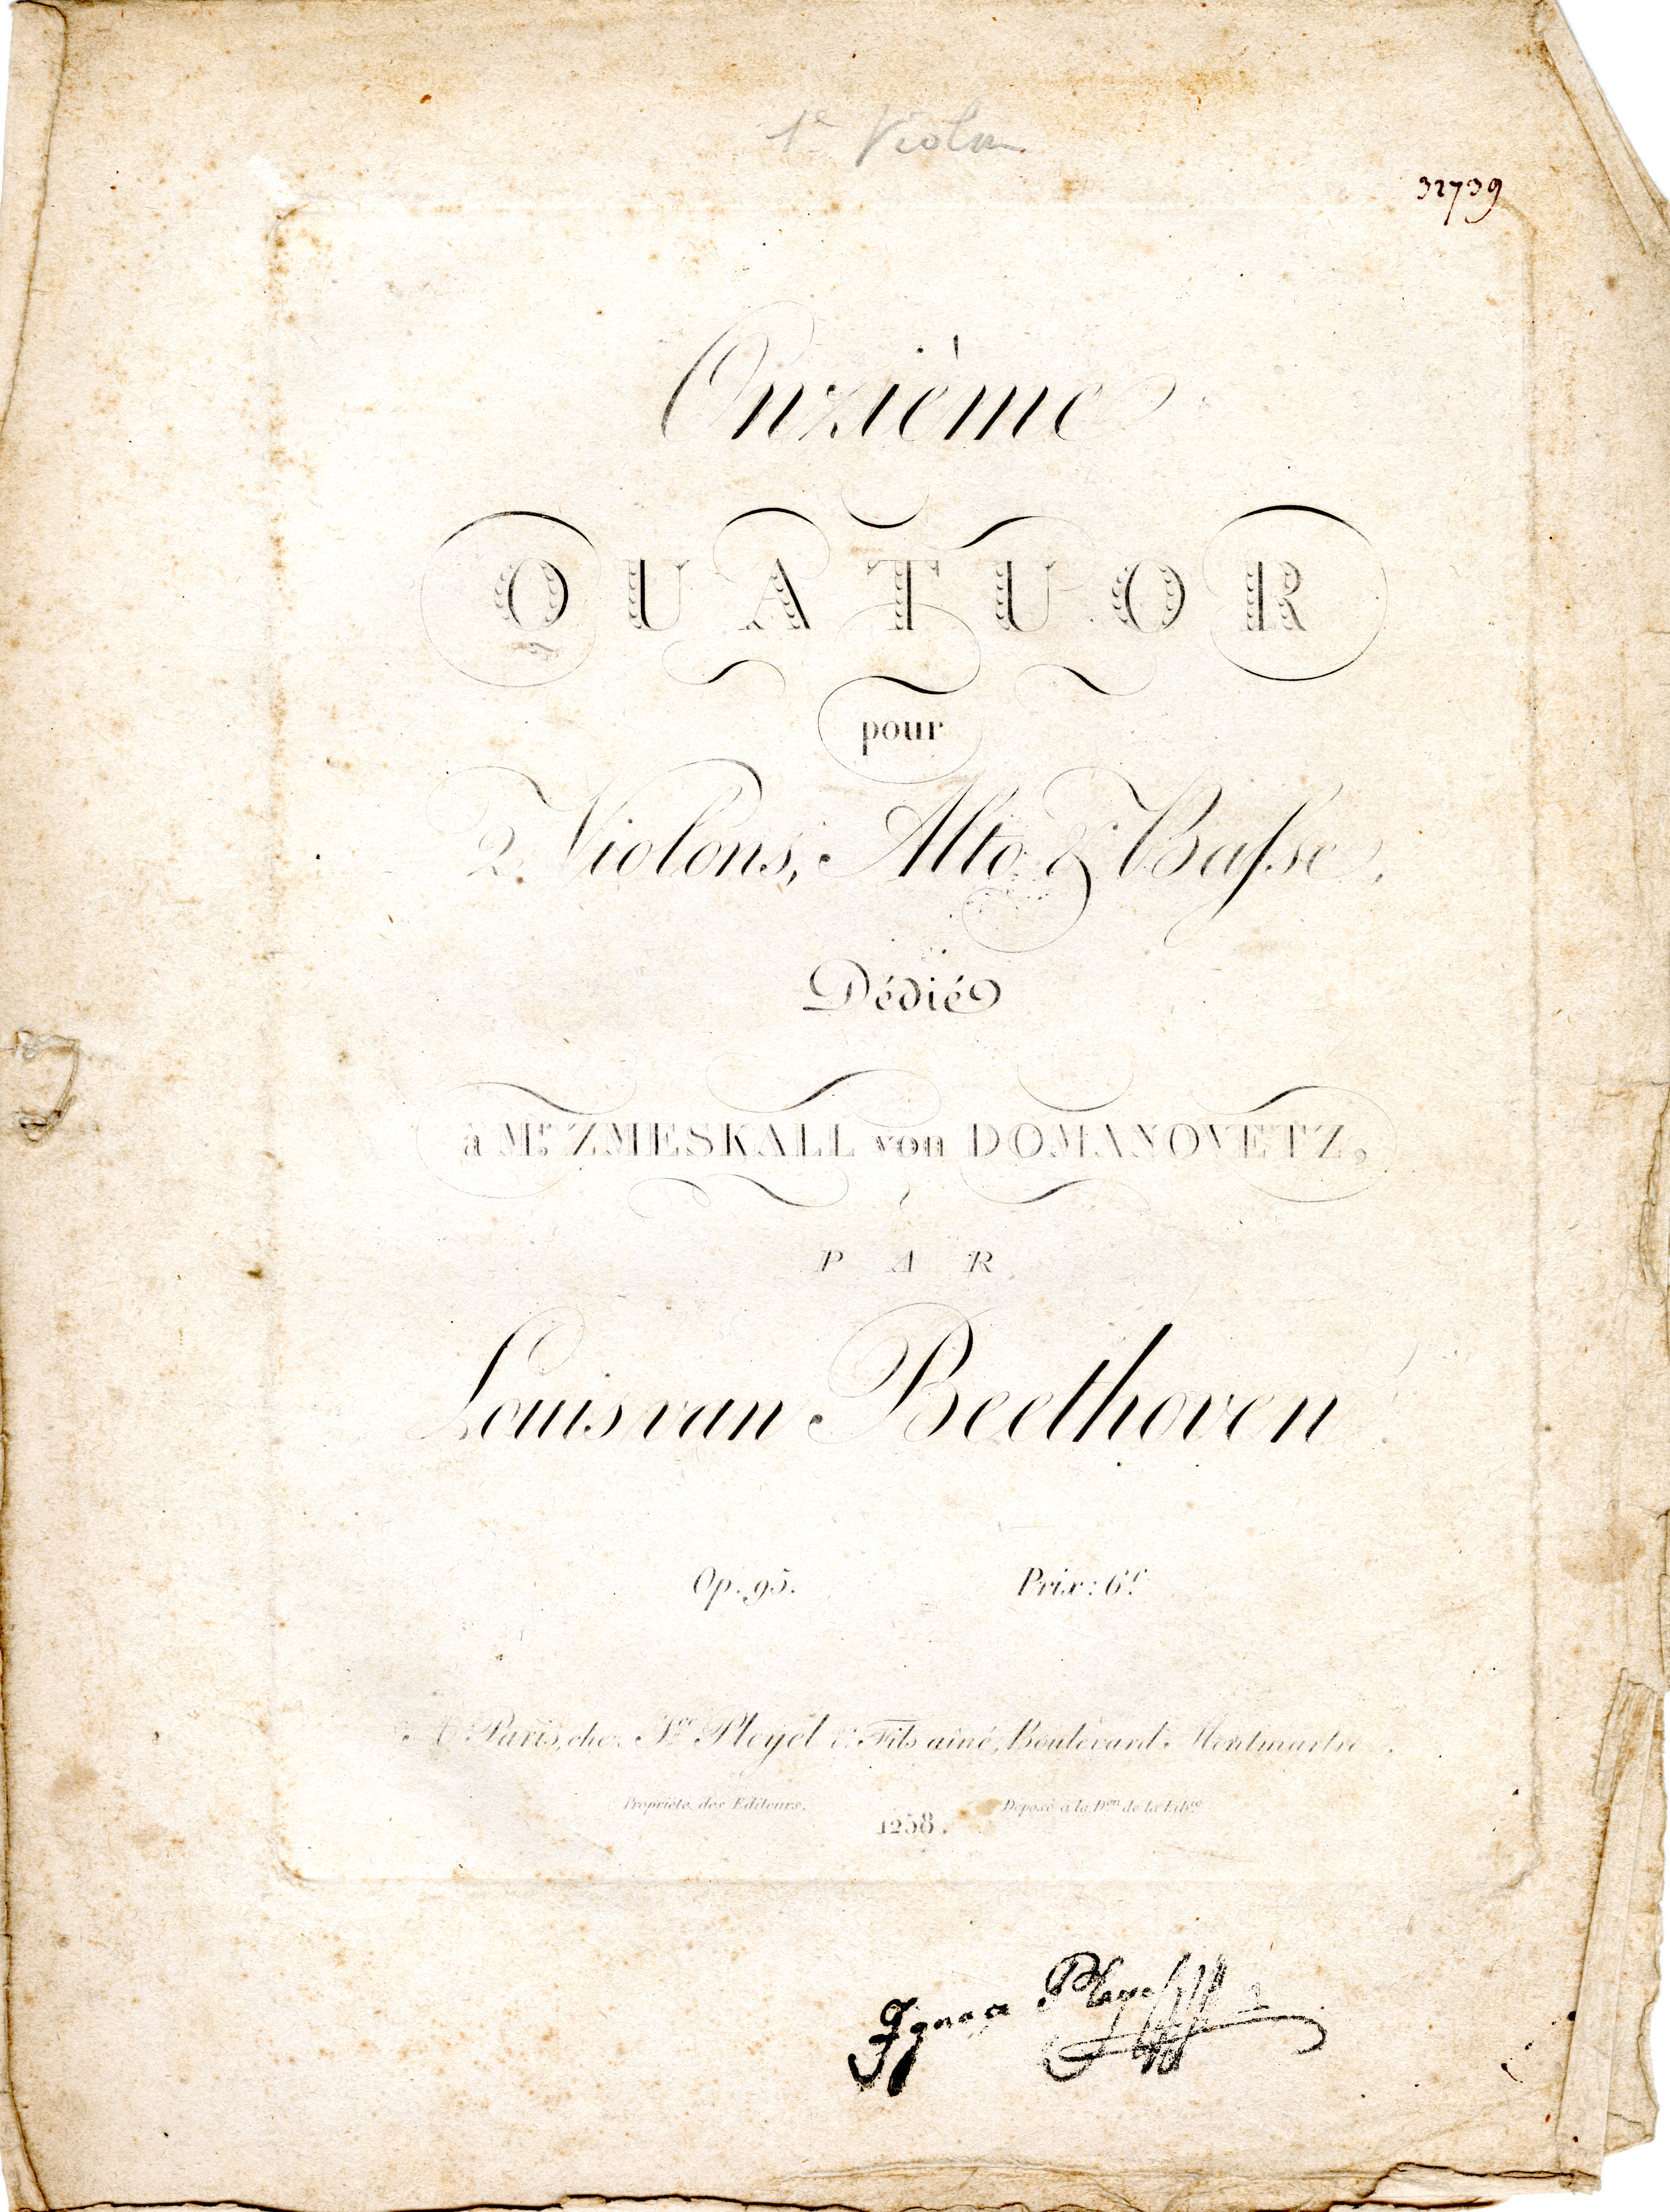 1e Violon
32739
Onzième
QUATUOR
pour
2 Violons, Alto & Baſse,
Dédié
à Mr. ZMESKALL von DOMANOVETZ,
PAR
Louis van Beethoven
Op. 95. Prix: 6f.
A Paris, chez Ice Pleyel & Fils aîné, Boulevard Montmartre.
Propriété des Editeurs. Déposé à la Don de la Libie
1258.
Ignace Pleyel